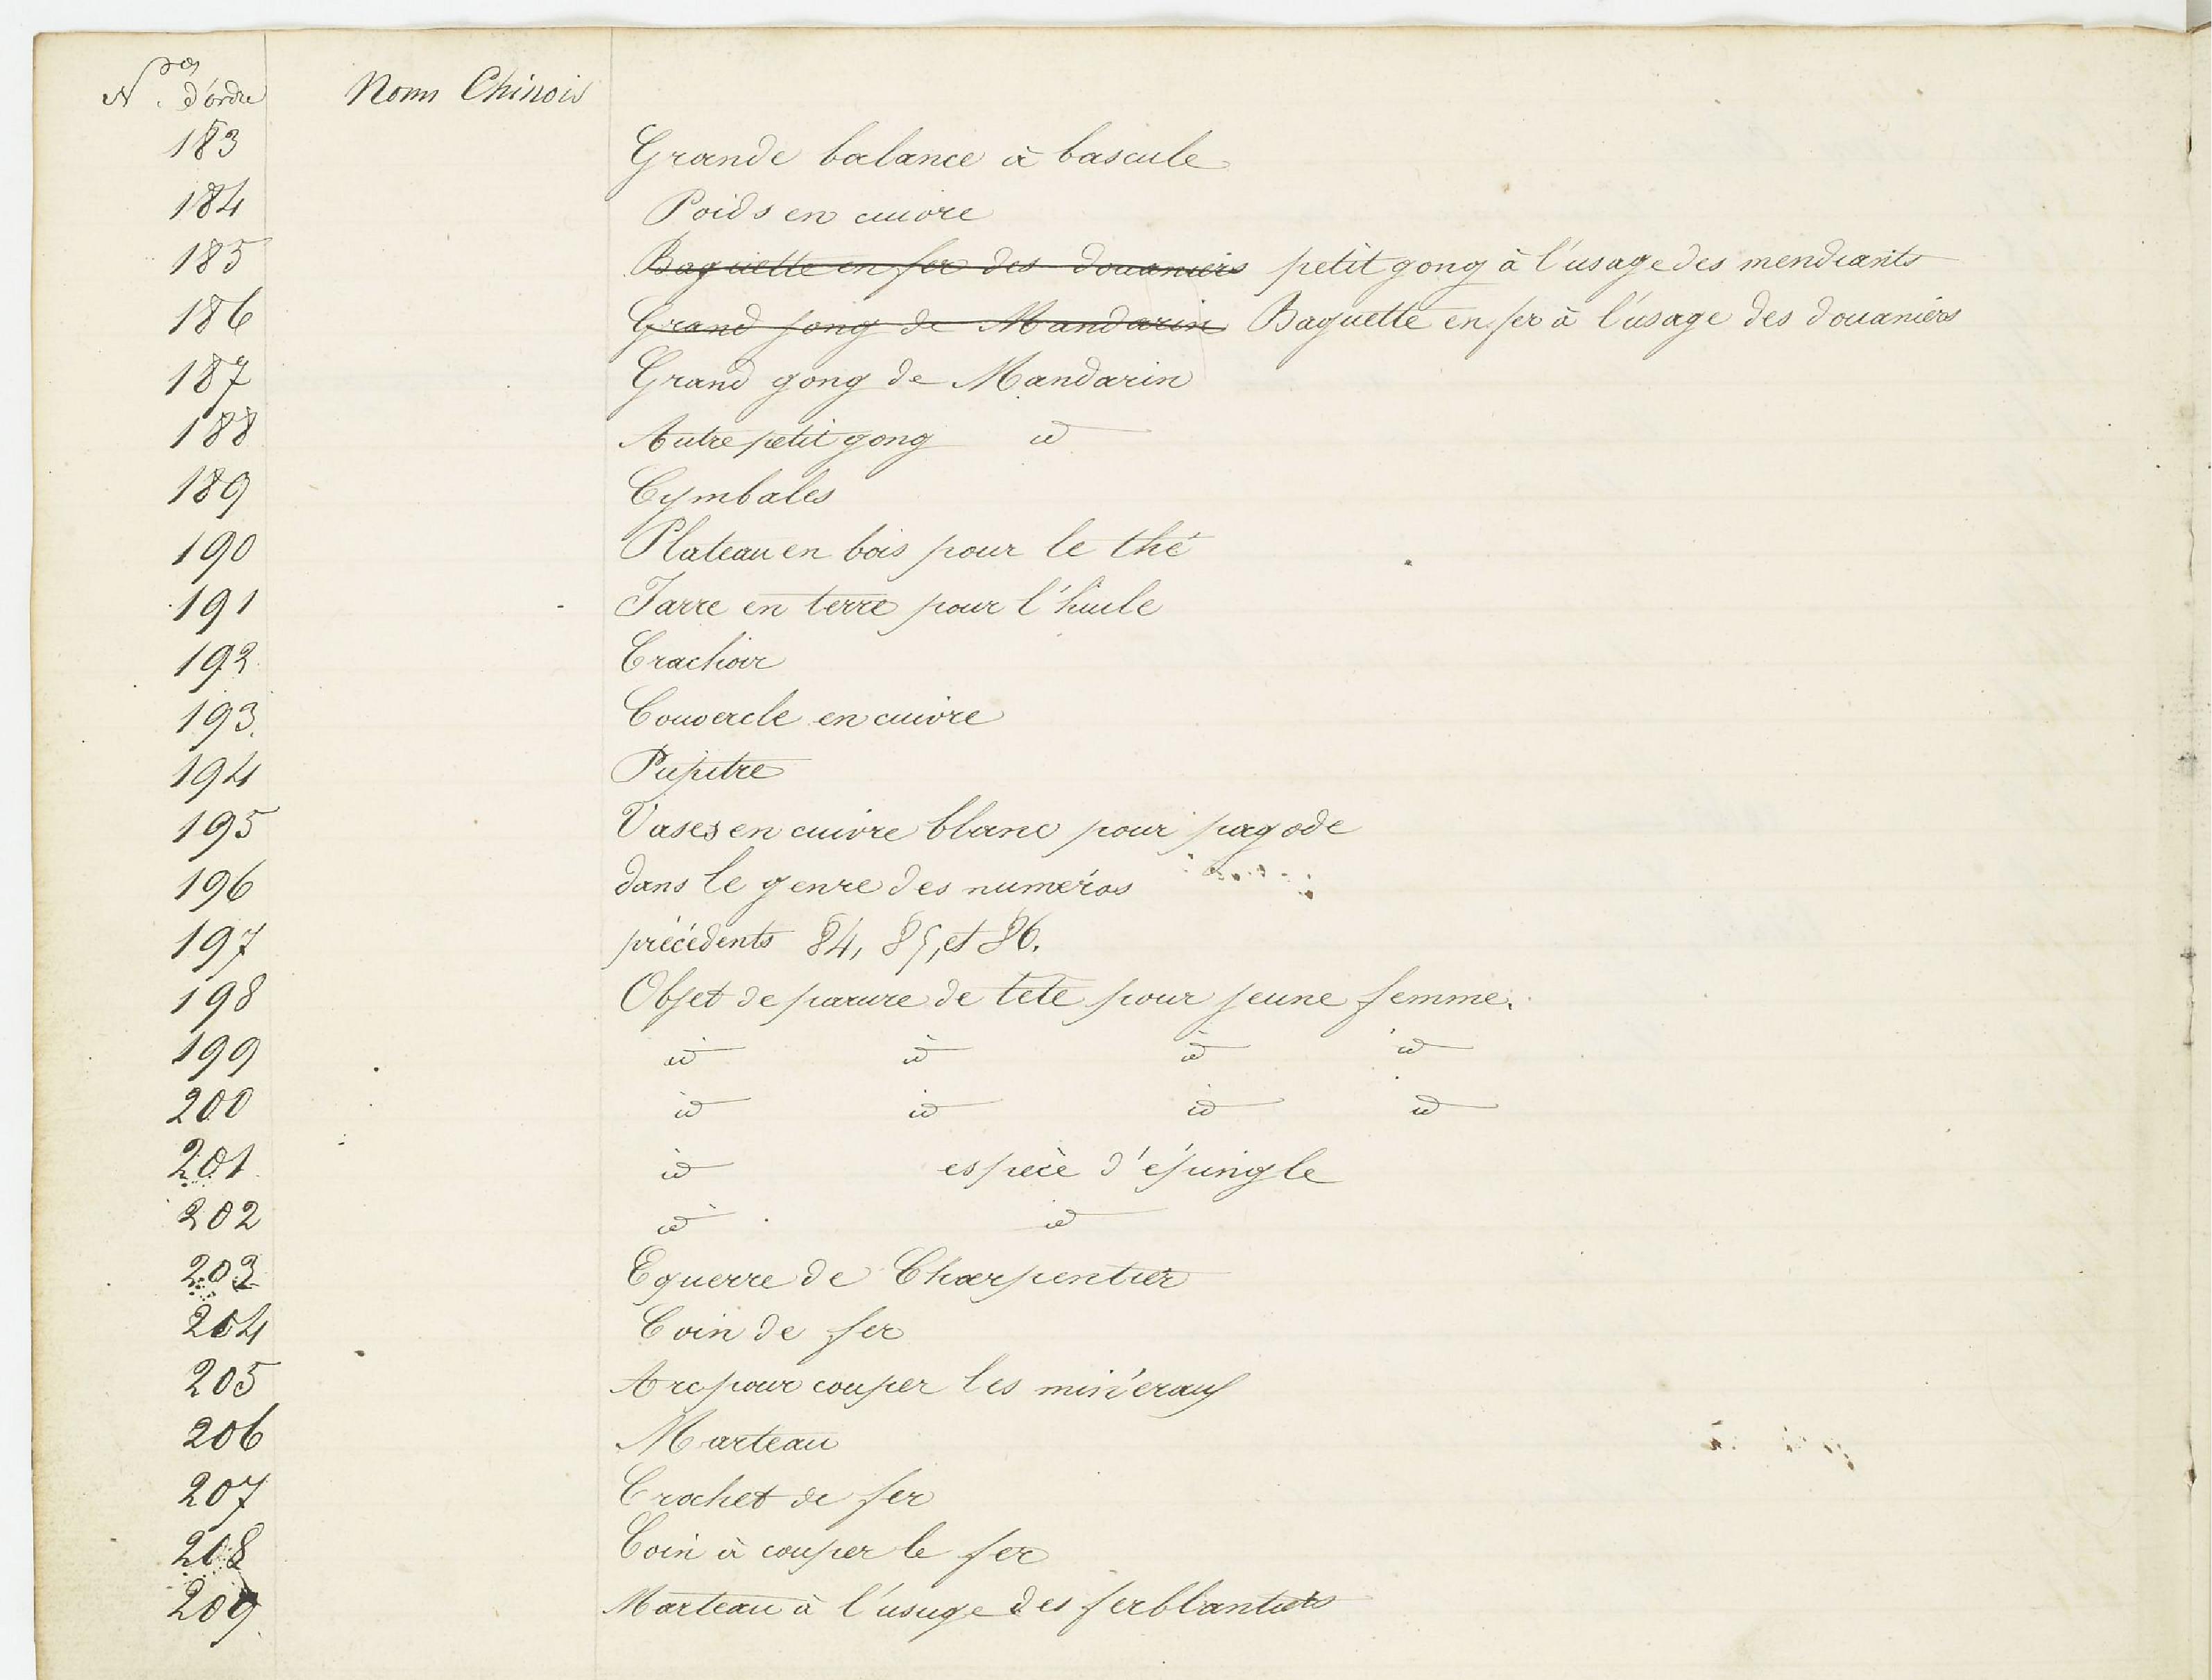 Nos d'ordre Noms Chinois
183 Grande balance à bascule
184 Poids en cuivre
185 Baguette en fer des douaniers petit gong à l'usage des mendiants
186 Grand gong de Mandarin Baguette en fer à l'usage des douaniers
187 Grand gong de Mandarin
188 Autre petit gong id
189 Cymbales
190 Plateau en bois pour le thé
191 Jarre en terre pour l'huile
192 Crachoir
193. Couvercle en cuivre
194 Pupitre
195 Vases en cuivre blanc pour pagode
196 dans le genre des numéros
197 précédents 84, 85, et 86.
198 Objet de parure de tête pour jeune femme.
199 id id id id
200 id id id id
201 id espèce d'épingle
202 id id
203 Equerre de Charpentier
204 Coin de fer
205 Arc pour couper les minéraux
206 Marteau
207 Crochet de fer
208 Coin à couper le fer
209 Marteau à l'usage des ferblantiers